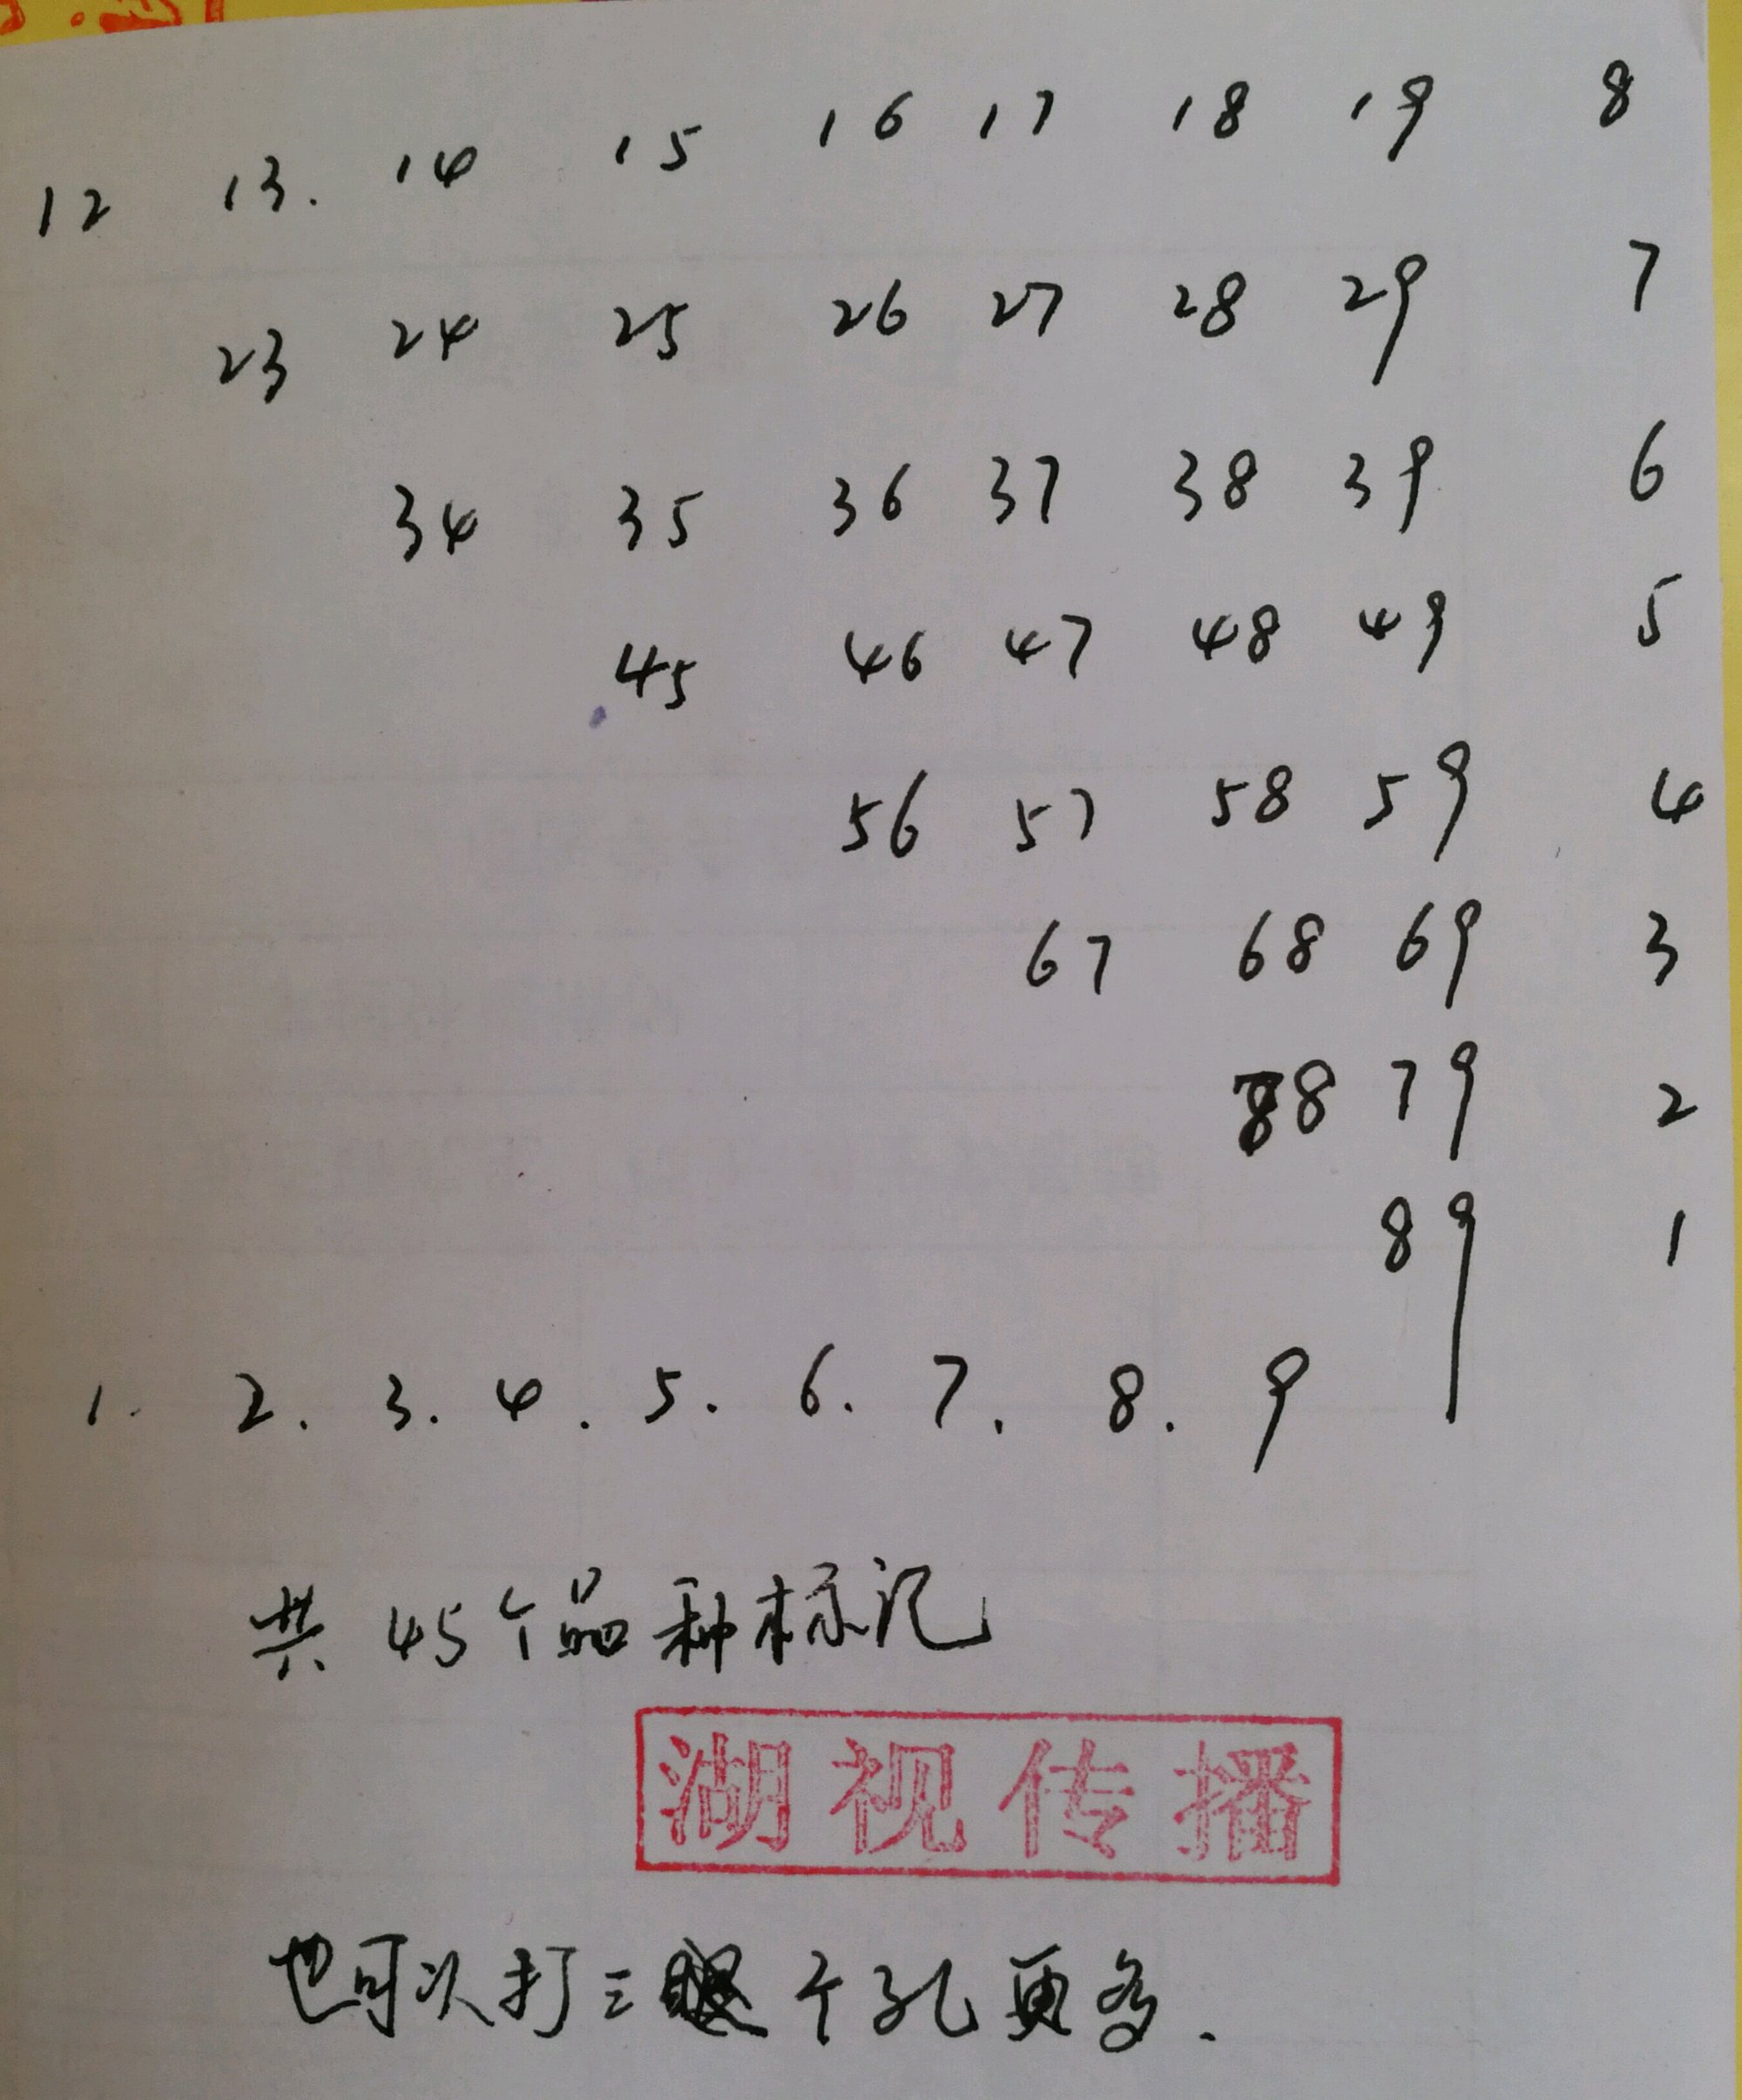 12 13. 14 15 16 17 18 19 8
23 24 25 26 27 28 29 7
34 35 36 37 38 39 6
45 46 47 48 49 5
56 57 58 59 4
67 68 69 3
78 79 2
89 1
1. 2. 3. 4. 5. 6. 7. 8. 9
共45个品种标记
湖视传播
也可以打三个孔更多.